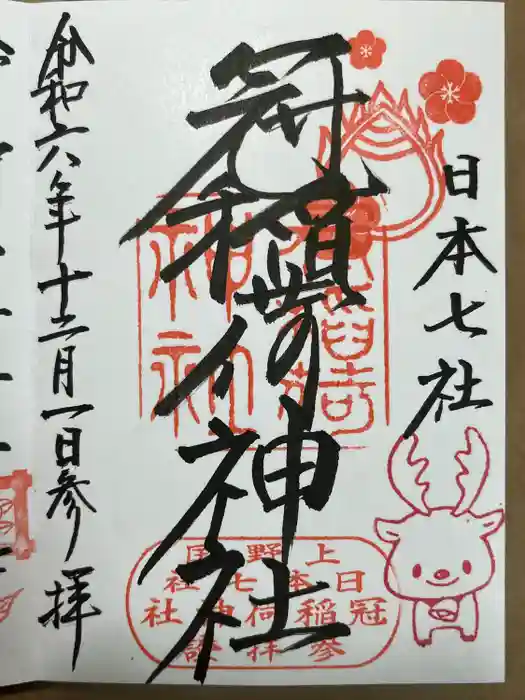 日本七社
冠稲荷神社
令和六年十二月一日参拝
上野国
日本七社
冠稲荷神社
参拝